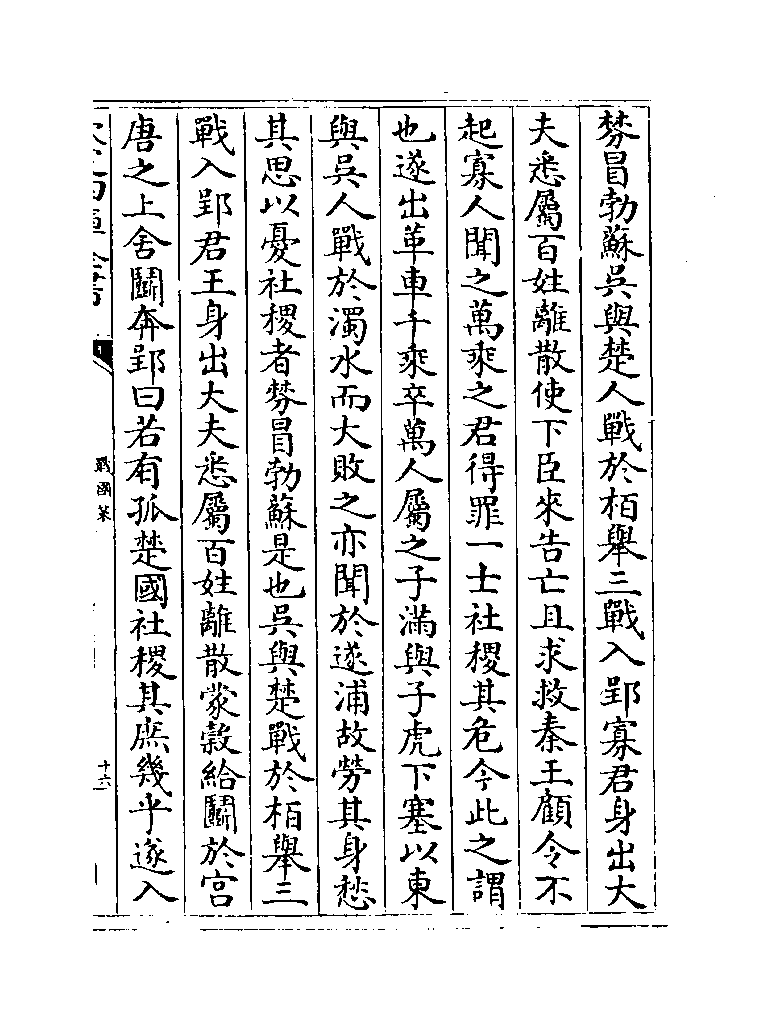 棼冒勃蘇吳與楚人戰於柏舉三戰入郢寡君身出大
夫悉屬百姓離散使下臣來告亡且求救秦王顧令不
起寡人聞之萬乘之君得罪一士社稷其危今此之謂
也遂出革車千乘卒萬人屬之子滿與子虎下塞以東
與吳人戰於濁水而大敗之亦聞於遂浦故勞其身愁
其思以憂社稷者棼冒勃蘇是也吳與楚戰於柏舉三
戰入郢君王身出大夫悉屬百姓離散蒙榖給鬭於宫
唐之上舍鬭奔郢曰若有孤楚國社稷其庶幾乎遂入
戰國策
十六